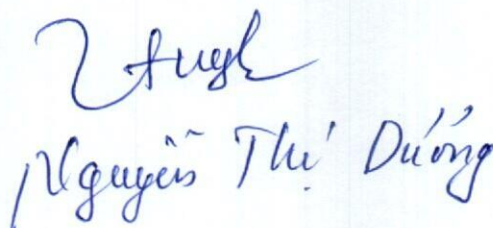 Nguyễn Thị Dướng